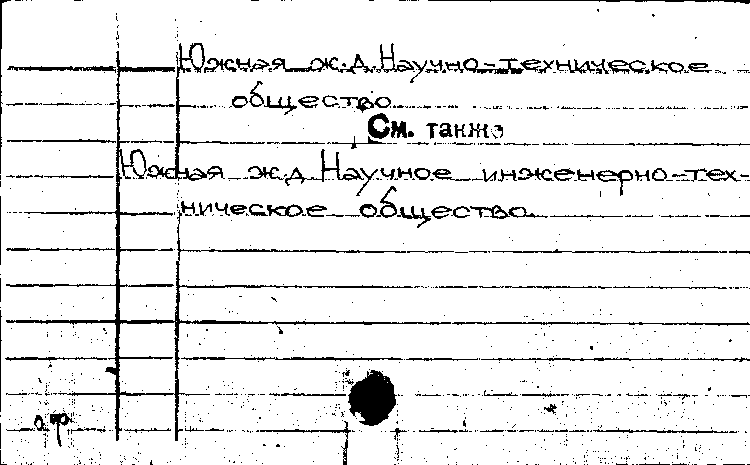 Южная ж.д. Научно-техническое
общество
См. также
Южная ж.д. Научное инженерно-тех-
ническое общество.